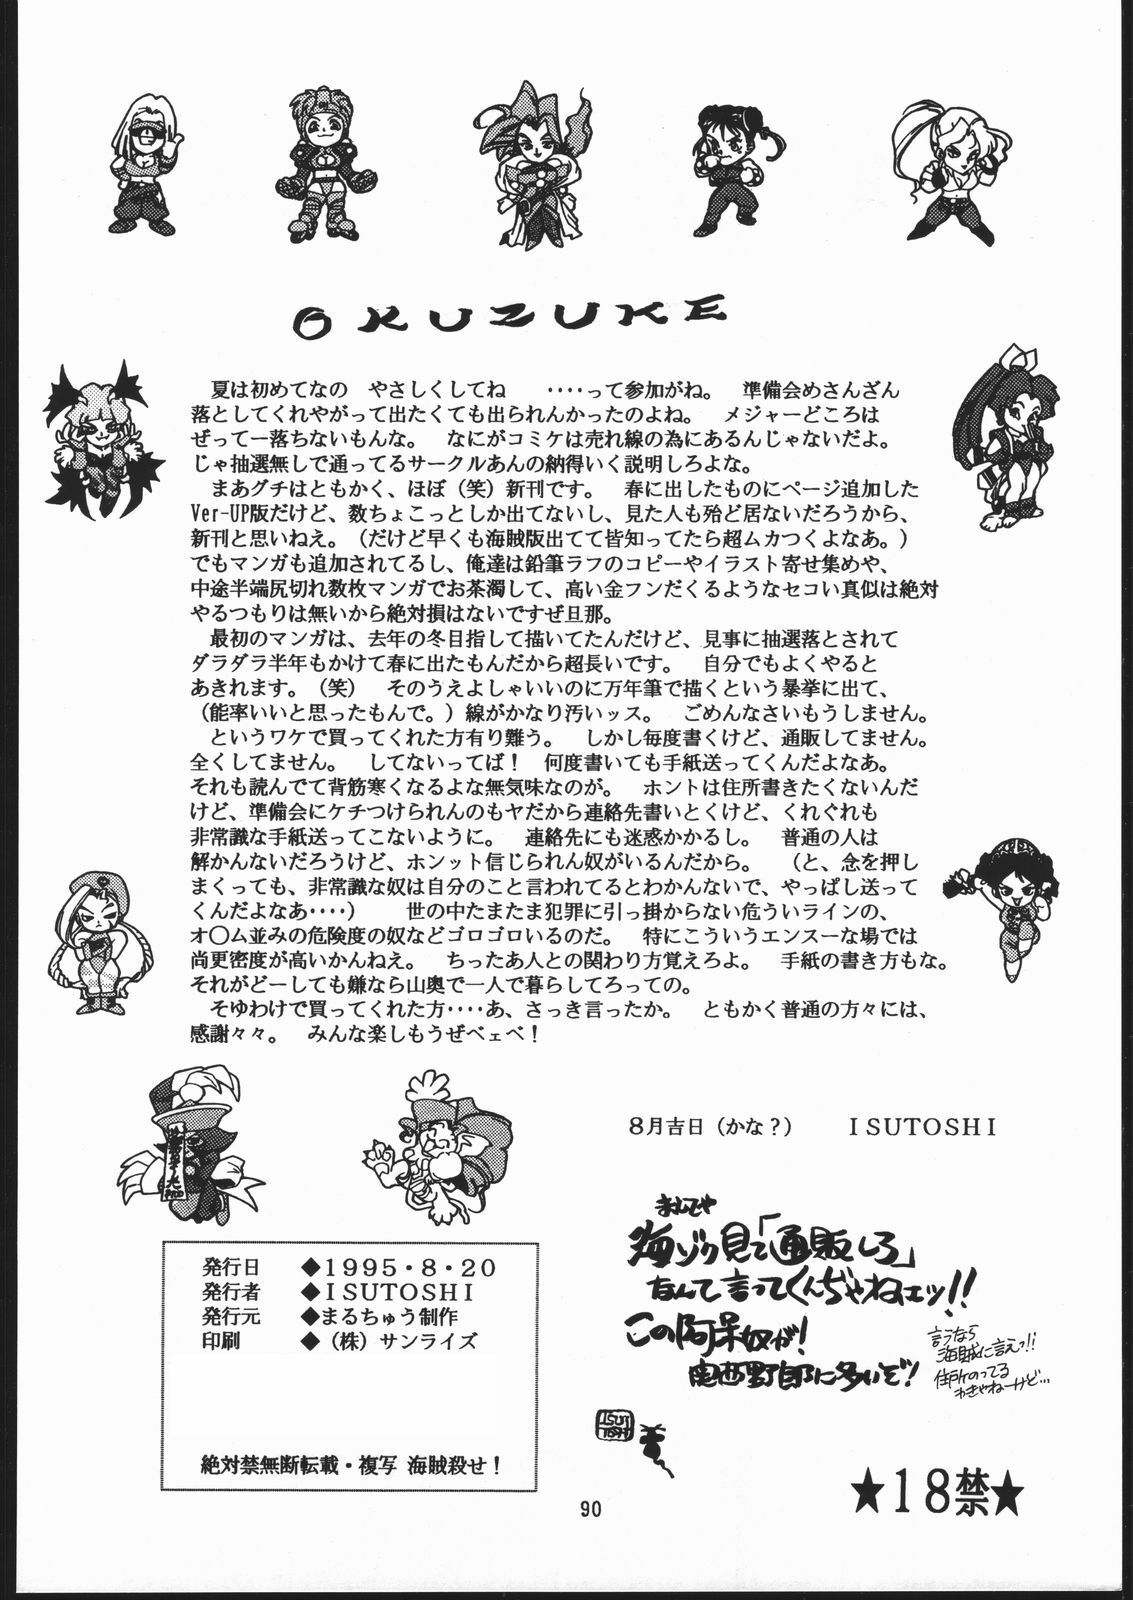 OKUZUKE
夏は初めてなの　やさしくしてね　‥‥って参加がね。　準備会めさんざん
落としてくれやがって出たくても出られんかったのよね。　メジャーどころは
ぜって一落ちないもんな。　なにがコミケは売れ線の為にあるんじゃないだよ。
じゃ抽選無しで通ってるサークルあんの納得いく説明しろよな。
まあグチはともかく、ほぼ（笑）新刊です。　春に出したものにページ追加した
Ver-UP版だけど、数ちょこっとしか出てないし、見た人も殆ど居ないだろうから、
新刊と思いねえ。（だけど早くも海賊版出てて皆知ってたら超ムカつくよなあ。）
でもマンガも追加されてるし、俺達は鉛筆ラフのコピーやイラスト寄せ集めや、
中途半端尻切れ数枚マンガでお茶濁して、高い金フンだくるようなセコい真似は絶対
やるつもりは無いから絶対損はないですぜ旦那。
最初のマンガは、去年の冬目指して描いてたんだけど、見事に抽選落とされて
ダラダラ半年もかけて春に出たもんだから超長いです。　自分でもよくやると
あきれます。（笑）　そのうえよしゃいいのに万年筆で描くという暴挙に出て、
（能率いいと思ったもんで。）線がかなり汚いッス。　ごめんなさいもうしません。
というワケで買ってくれた方有り難う。　しかし毎度書くけど、通販してません。
全くしてません。　してないってば！　何度書いても手紙送ってくんだよなあ。
それも読んでて背筋寒くなるよな無気味なのが。　ホントは住所書きたくないんだ
けど、準備会にケチつけられんのもヤだから連絡先書いとくけど、くれぐれも
非常識な手紙送ってこないように。　連絡先にも迷惑かかるし。　普通の人は
解かんないだろうけど、ホンット信じられん奴がいるんだから。　（と、念を押し
まくっても、非常識な奴は自分のこと言われてるとわかんないで、やっぱし送って
くんだよなあ‥‥）　世の中たまたま犯罪に引っ掛からない危ういラインの、
オ〇ム並みの危険度の奴などゴロゴロいるのだ。　特にこういうエンスーな場では
尚更密度が高いかんねえ。　ちったあ人との関わり方覚えろよ。　手紙の書き方もな。
それがどーしても嫌なら山奥で一人で暮らしてろっての。
そゆわけで買ってくれた方‥‥あ、さっき言ったか。　ともかく普通の方々には、
感謝々々。　みんな楽しもうぜベェベ！
８月吉日（かな？）　ＩＳＵＴＯＳＨＩ
ましてや
海ゾク見て「通販しろ」
なんて言ってくんぢゃねェッ!!
この阿呆奴が!
関西野郎に多いぞ!
言うなら
海賊に言えっ!!
住所のってる
わきゃねーけど…
ISUT
OSHI
発行日　◆１９９５・８・２０
発行者　◆ＩＳＵＴＯＳＨＩ
発行元　◆まるちゅう制作
印刷　◆（株）サンライズ
絶対禁無断転載・複写 海賊殺せ！
90
★１８禁★